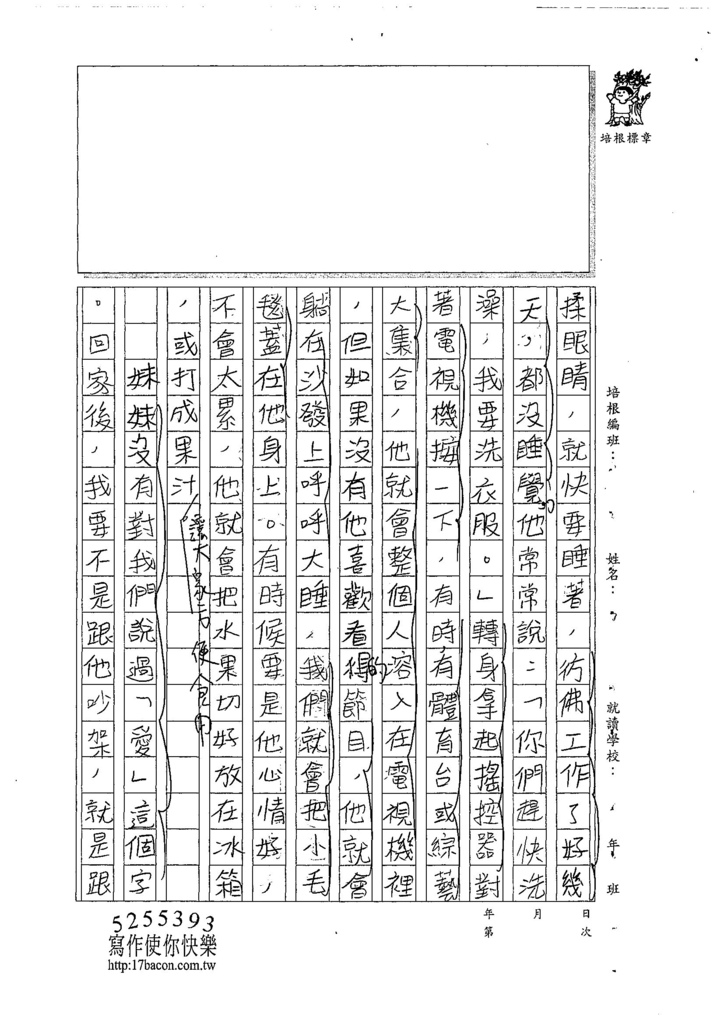 培根標章
培根編班：
姓名：
就讀學校：
年 班
日 次
月
年 第
揉眼睛，就快要睡著，彷彿工作了好幾
天，都沒睡覺，他常常說：「你們趕快洗
澡，我要洗衣服。」轉身拿起搖控器對
著電視機按一下，有時有體育台或綜藝
大集合，他就會整個人溶入在電視機裡
，但如果沒有他喜歡看的節目，他就會
躺在沙發上呼呼大睡，我們就會把小毛
毯蓋在他身上。有時候要是他心情好，
不會太累，他就會把水果切好放在冰箱
，或打成果汁
讓大家方便食用
妹妹沒有對我們說過「愛」這個字
。回家後，我要不是跟他吵架，就是跟
5255393
寫作使你快樂
http:17bacon.com.tw